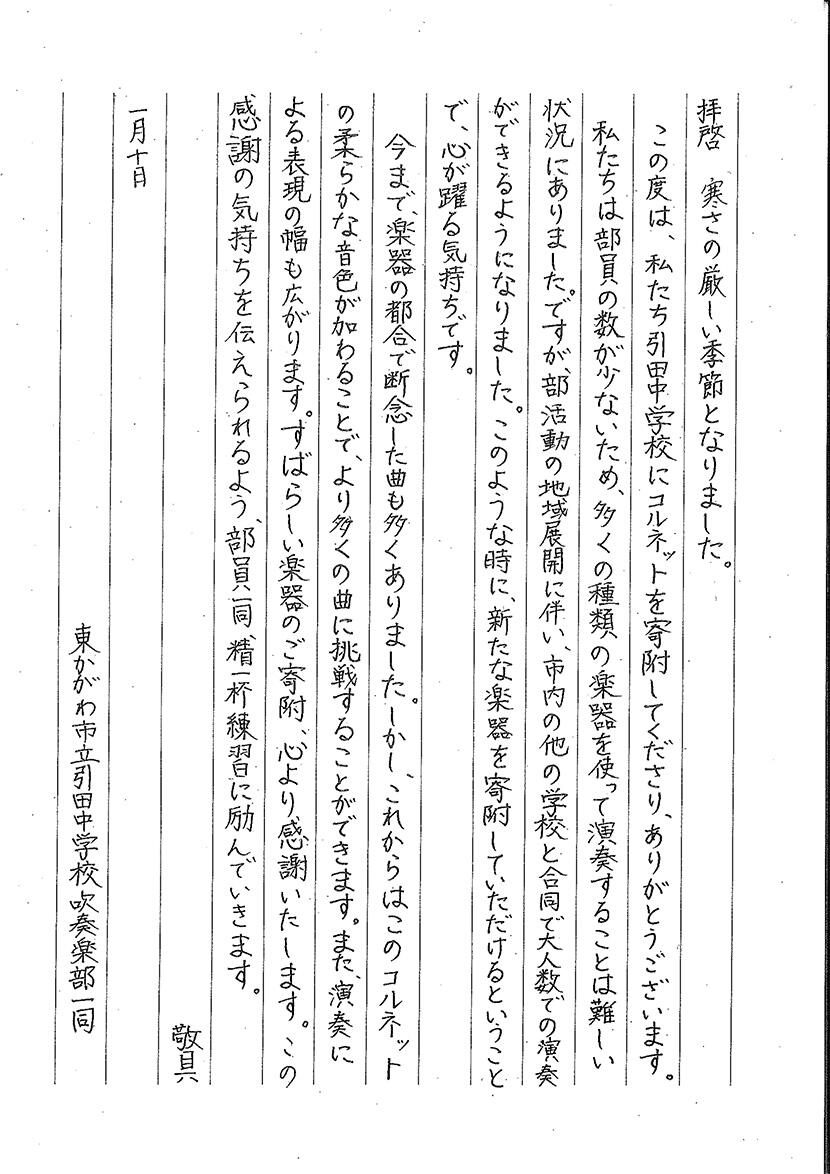 拝啓　寒さの厳しい季節となりました。
この度は、私たち引田中学校にコルネットを寄附してくださり、ありがとうございます。
私たちは部員の数が少ないため、多くの種類の楽器を使って演奏することは難しい
状況にありました。ですが、部活動の地域展開に伴い、市内の他の学校と合同で大人数での演奏
ができるようになりました。このような時に、新たな楽器を寄附していただけるということ
で、心が躍る気持ちです。
今まで、楽器の都合で断念した曲も多くありました。しかし、これからはこのコルネット
の柔らかな音色が加わることで、より多くの曲に挑戦することができます。また、演奏に
よる表現の幅も広がります。すばらしい楽器のご寄附、心より感謝いたします。この
感謝の気持ちを伝えられるよう、部員一同、精一杯練習に励んでいきます。
敬具
一月十日
東かがわ市立引田中学校吹奏楽部一同